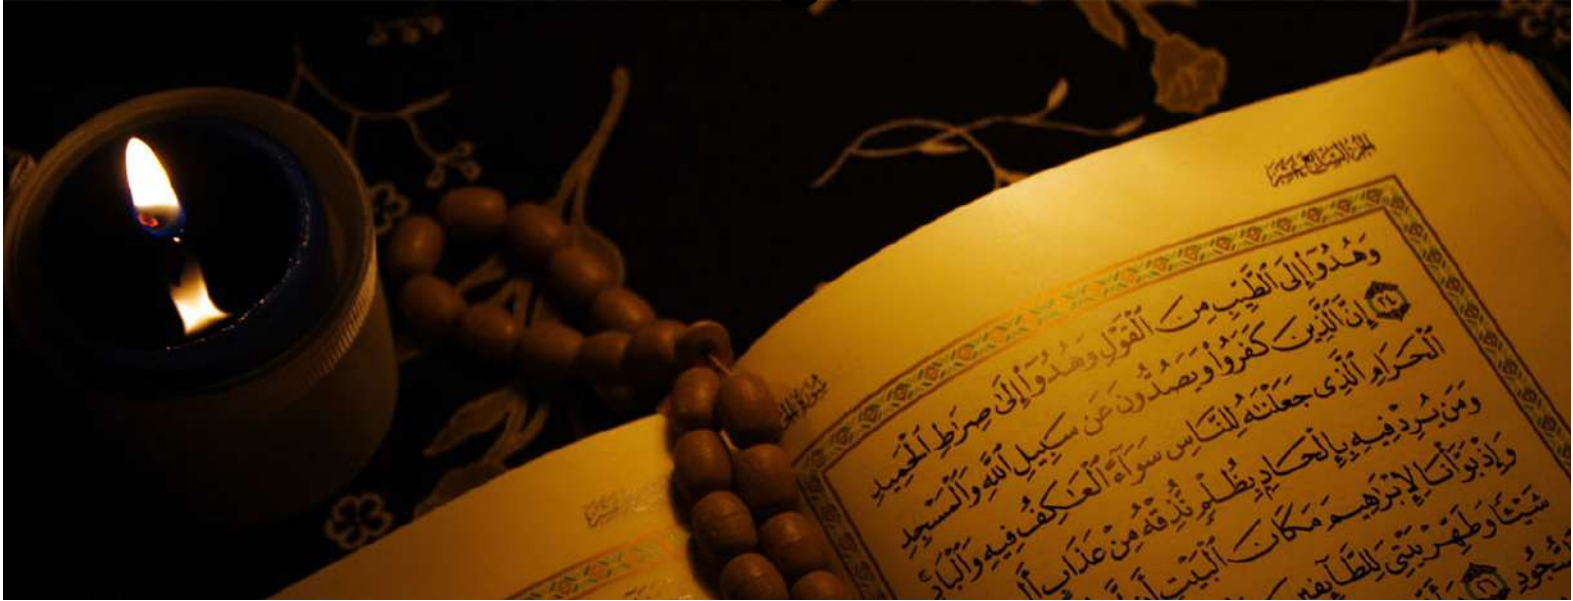 الجزء السابع عشر
وَهُدُوٓا۟ إِلَى ٱلطَّيِّبِ مِنَ ٱلْقَوْلِ وَهُدُوٓا۟ إِلَىٰ صِرَٰطِ ٱلْحَمِيدِ
٢٤ إِنَّ ٱلَّذِينَ كَفَرُوا۟ وَيَصُدُّونَ عَن سَبِيلِ ٱللَّهِ وَٱلْمَسْجِدِ
ٱلْحَرَامِ ٱلَّذِى جَعَلْنَٰهُ لِلنَّاسِ سَوَآءً ٱلْعَٰكِفُ فِيهِ وَٱلْبَادِ
وَمَن يُرِدْ فِيهِ بِإِلْحَادٍۭ بِظُلْمٍ نُّذِقْهُ مِنْ عَذَابٍ
وَإِذْ بَوَّأْنَا لِإِبْرَٰهِيمَ مَكَانَ ٱلْبَيْتِ أَن
شَيْـًٔا وَطَهِّرْ بَيْتِىَ لِلطَّآئِفِينَ
ٱلسُّجُودِ ٢٦